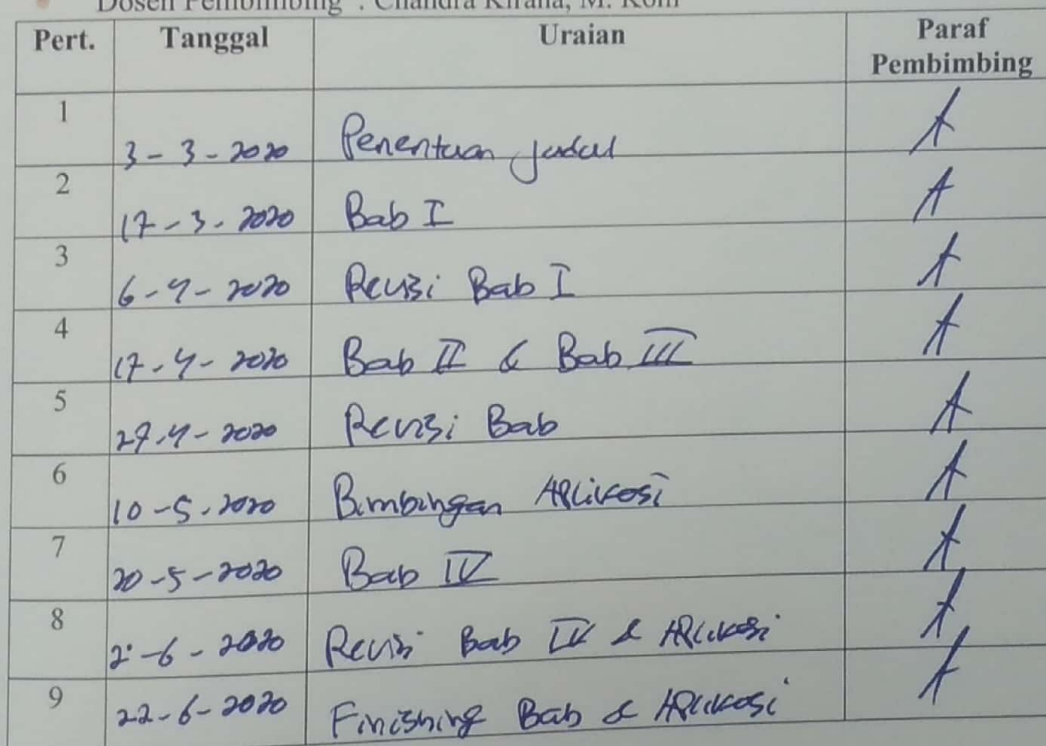 Dosen Pembimbing : Chandra Kirana, M. Kom
Pert. Tanggal Uraian Paraf Pembimbing
1 3-3-2020 Penentuan judul
2 17-3-2020 Bab I
3 6-4-2020 Revisi Bab I
4 17-4-2020 Bab II & Bab III
5 29-4-2020 Revisi Bab
6 10-5-2020 Bimbingan Aplikasi
7 20-5-2020 Bab IV
8 2-6-2020 Revisi Bab IV & Aplikasi
9 22-6-2020 Finishing Bab & Aplikasi